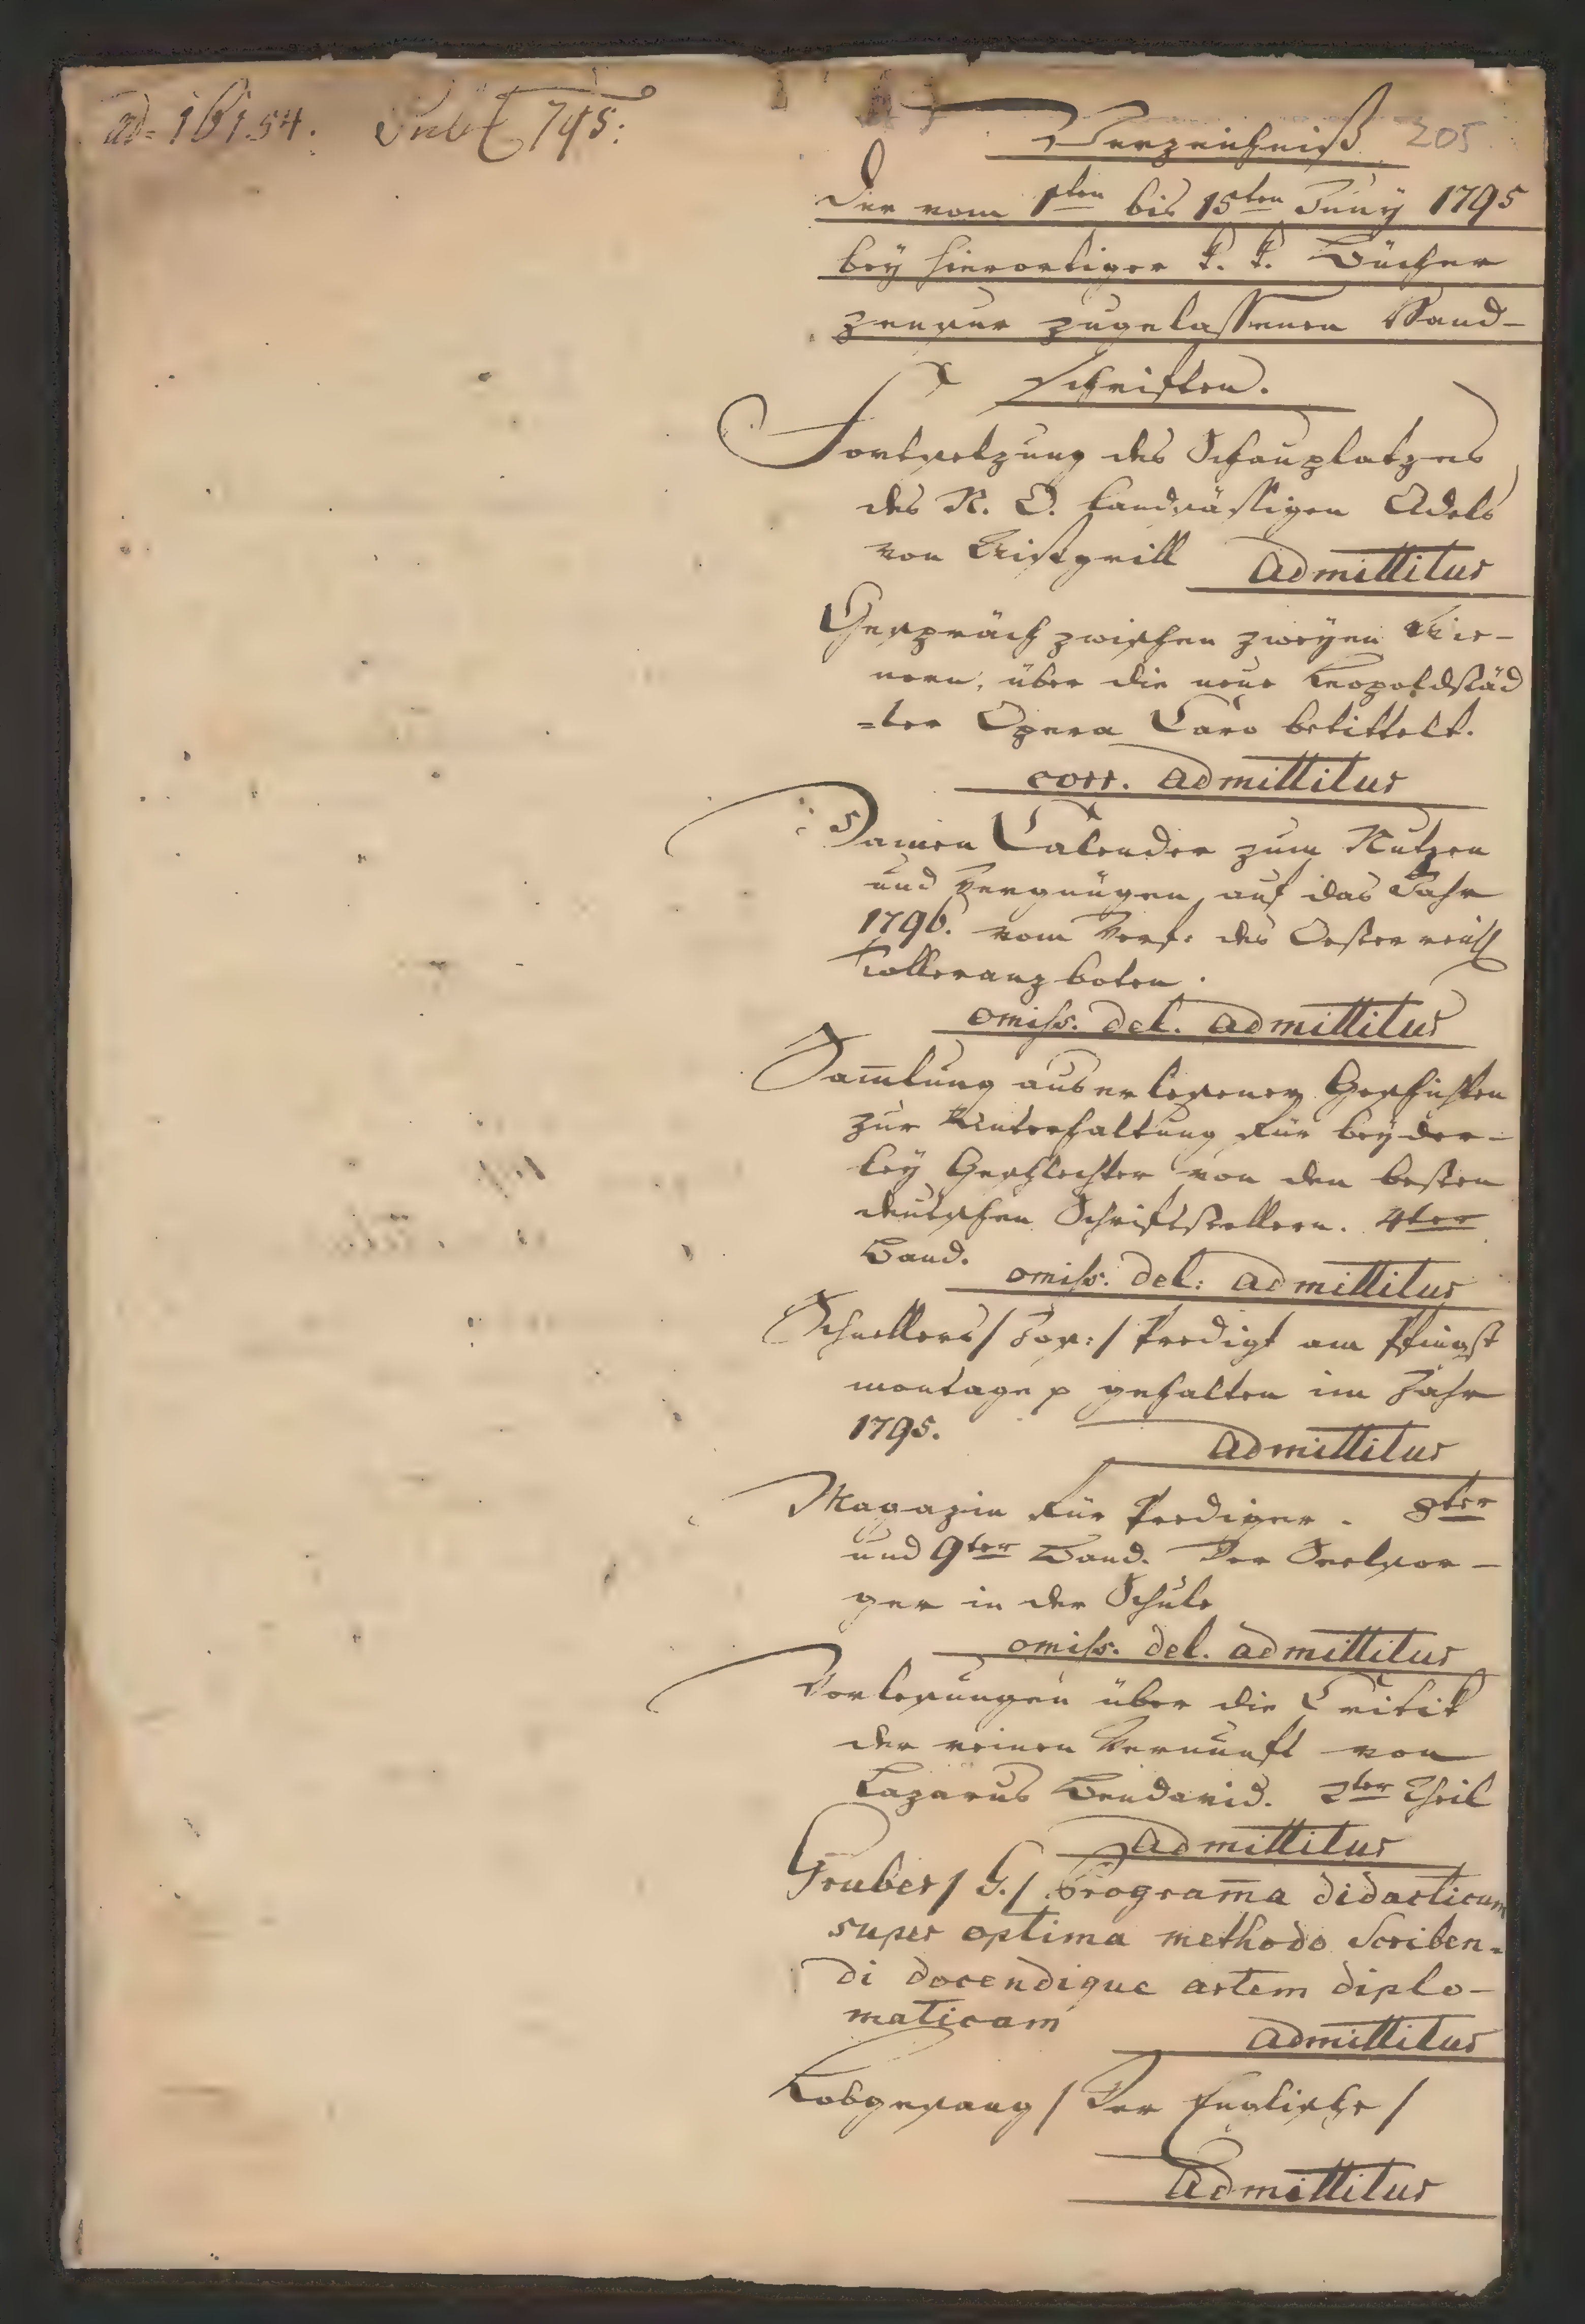 ad 16154. Jul 795:
205
Verzeichniß
der vom 1ten bis 15ten Juny 1795
bey hierortiger k. k. Bücher
zensur zugelassenen Hand-
schriften.
Fortsetzung des Schauplatzes
des N. O. landsässigen Adels
von Wisgrill admittitur
Gespräch zwischen zweyen Wie-
nern, über die neue Leopoldstäd
=ter Opera Caro betittelt.
corr. admittitur
Damen Calender zum Nutzen
und Vergnügen auf das Jahr
1796. vom Verf: des Oesterreich
Tolleranzboten.
omiss. del. admittitur
Sam̅lung auserlesener Geschichten
zur Unterhaltung für beyder-
ley Geschlechter von den besten
deutschen Schriftstellern. 4ter
Band. omiss. del: admittitur
Schnellers / Jos: / Predigt am Pfingst
montage p gehalten im Jahr
1795. admittitur
Magazin für Prediger. 8ter
und 9ter Band. Der Seelsor-
ger in der Schule
omiss. del. admittitur
Vorlesungen über die Critik
der reinen Vernunft von
Lazarus Bendavid. 2ter Theil
admittitur
Gruber / G. / Program̅a didacticum
super optima methodo scriben=
di docendique artem diplo-
maticam admittitur
Lobgesang / Der Englische /
admittitur